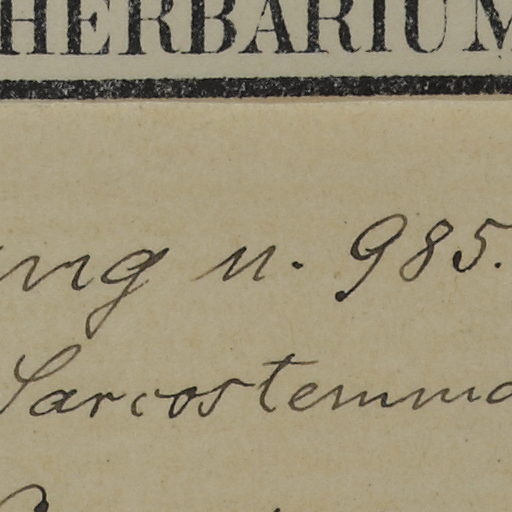 HERBARIUM
ng n. 985.
Sarcostemma